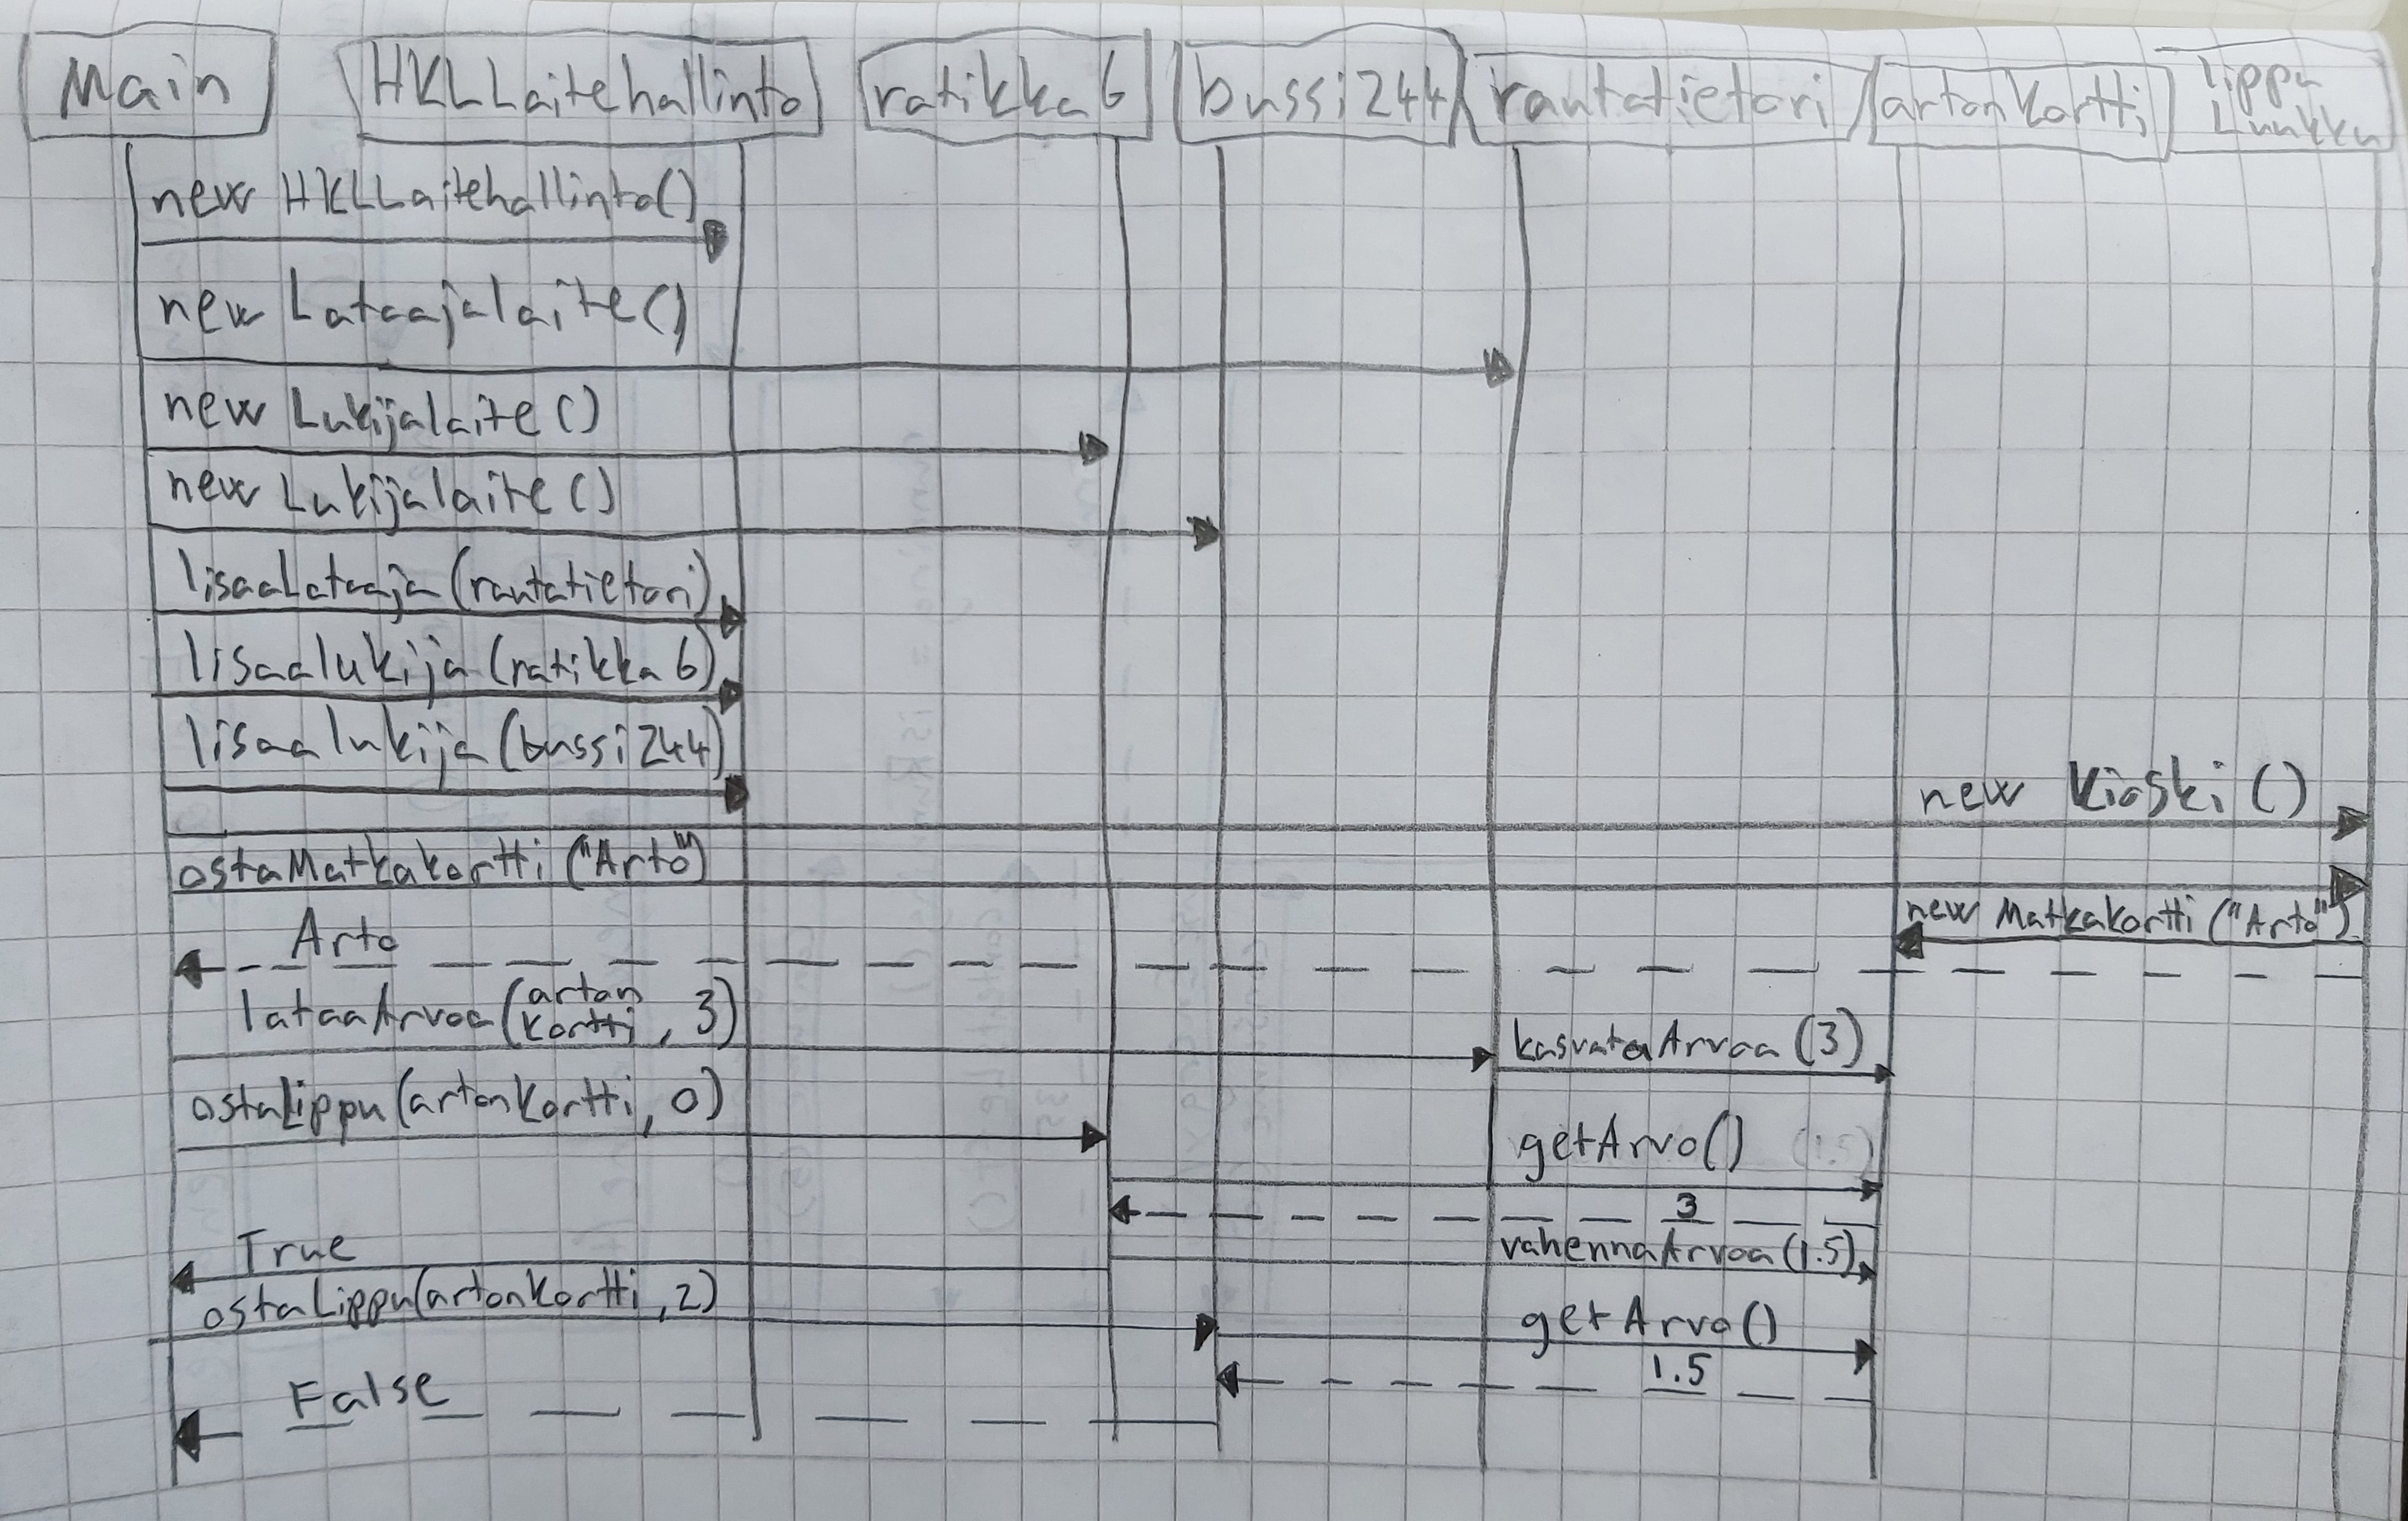 Main HKLLaitehallinto ratikka6 bussi244 rautatietori artonKortti lippu
Luukku
new HKLLaitehallinto()
new Lataajalaite()
new Lukijalaite()
new Lukijalaite()
lisaaLataaja(rautatietori)
lisaalukija(ratikka6)
lisaalukija(bussi244)
new Kioski()
ostaMatkakortti("Arto")
new Matkakortti("Arto")
Arto
lataaArvoa(arton
kortti, 3)
kasvataArvoa(3)
ostaLippu(artonKortti, 0)
getArvo() (1.5)
3
vahennaArvoa(1.5)
True
ostaLippu(artonKortti, 2)
getArvo()
1.5
False